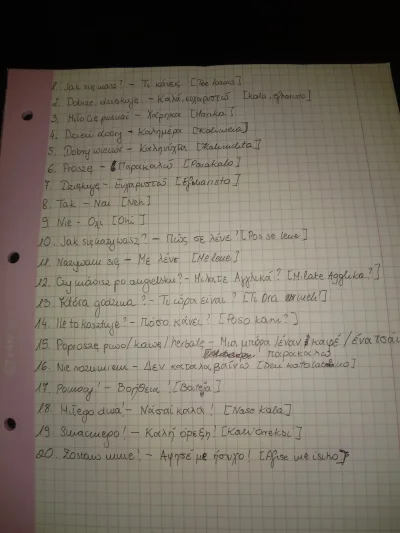 1. Jak się masz? - Τι κάνεις [Tee kanis]
2. Dobrze, dziękuję - Καλά, ευχαριστώ [kala, efharisto]
3. Miło Cię poznać - Χάρηκα [Harika]
4. Dzień dobry - Καλημέρα [Kalimera]
5. Dobry wieczór - Καληνύχτα [Kalinihta]
6. Proszę - Παρακαλώ [Parakalo]
7. Dziękuję - Ευχαριστώ [Efharisto]
8. Tak - Ναί [Neh]
9. Nie - Οχι [Ohi]
10. Jak się nazywasz? - Πώς σε λένε? [Pos se lene]
11. Nazywam się - Με λένε [Me lene]
12. Czy mówisz po angielsku? - Μιλατε Αγγλικά? [Milate Agglika?]
13. Która godzina? - Τι ώρα είναι? [Ti ora]
14. Ile to kosztuje? - Πόσο κάνει? [Poso kani?]
15. Poproszę piwo/kawę/herbatę - Μια μπύρα/έναν καφέ/ένα τσάι
παρακαλώ
16. Nie rozumiem - Δεν καταλαβαίνω [Den]
17. Pomocy! - Βοήθεια! [Boteja]
18. Miłego dnia! - Νάσαι καλα! [Nase kala]
19. Smacznego! - Καλή όρεξη! [Kali oreksi]
20. Zostaw mnie! - Αφησέ με ήσυχο! [Afise me isiho]